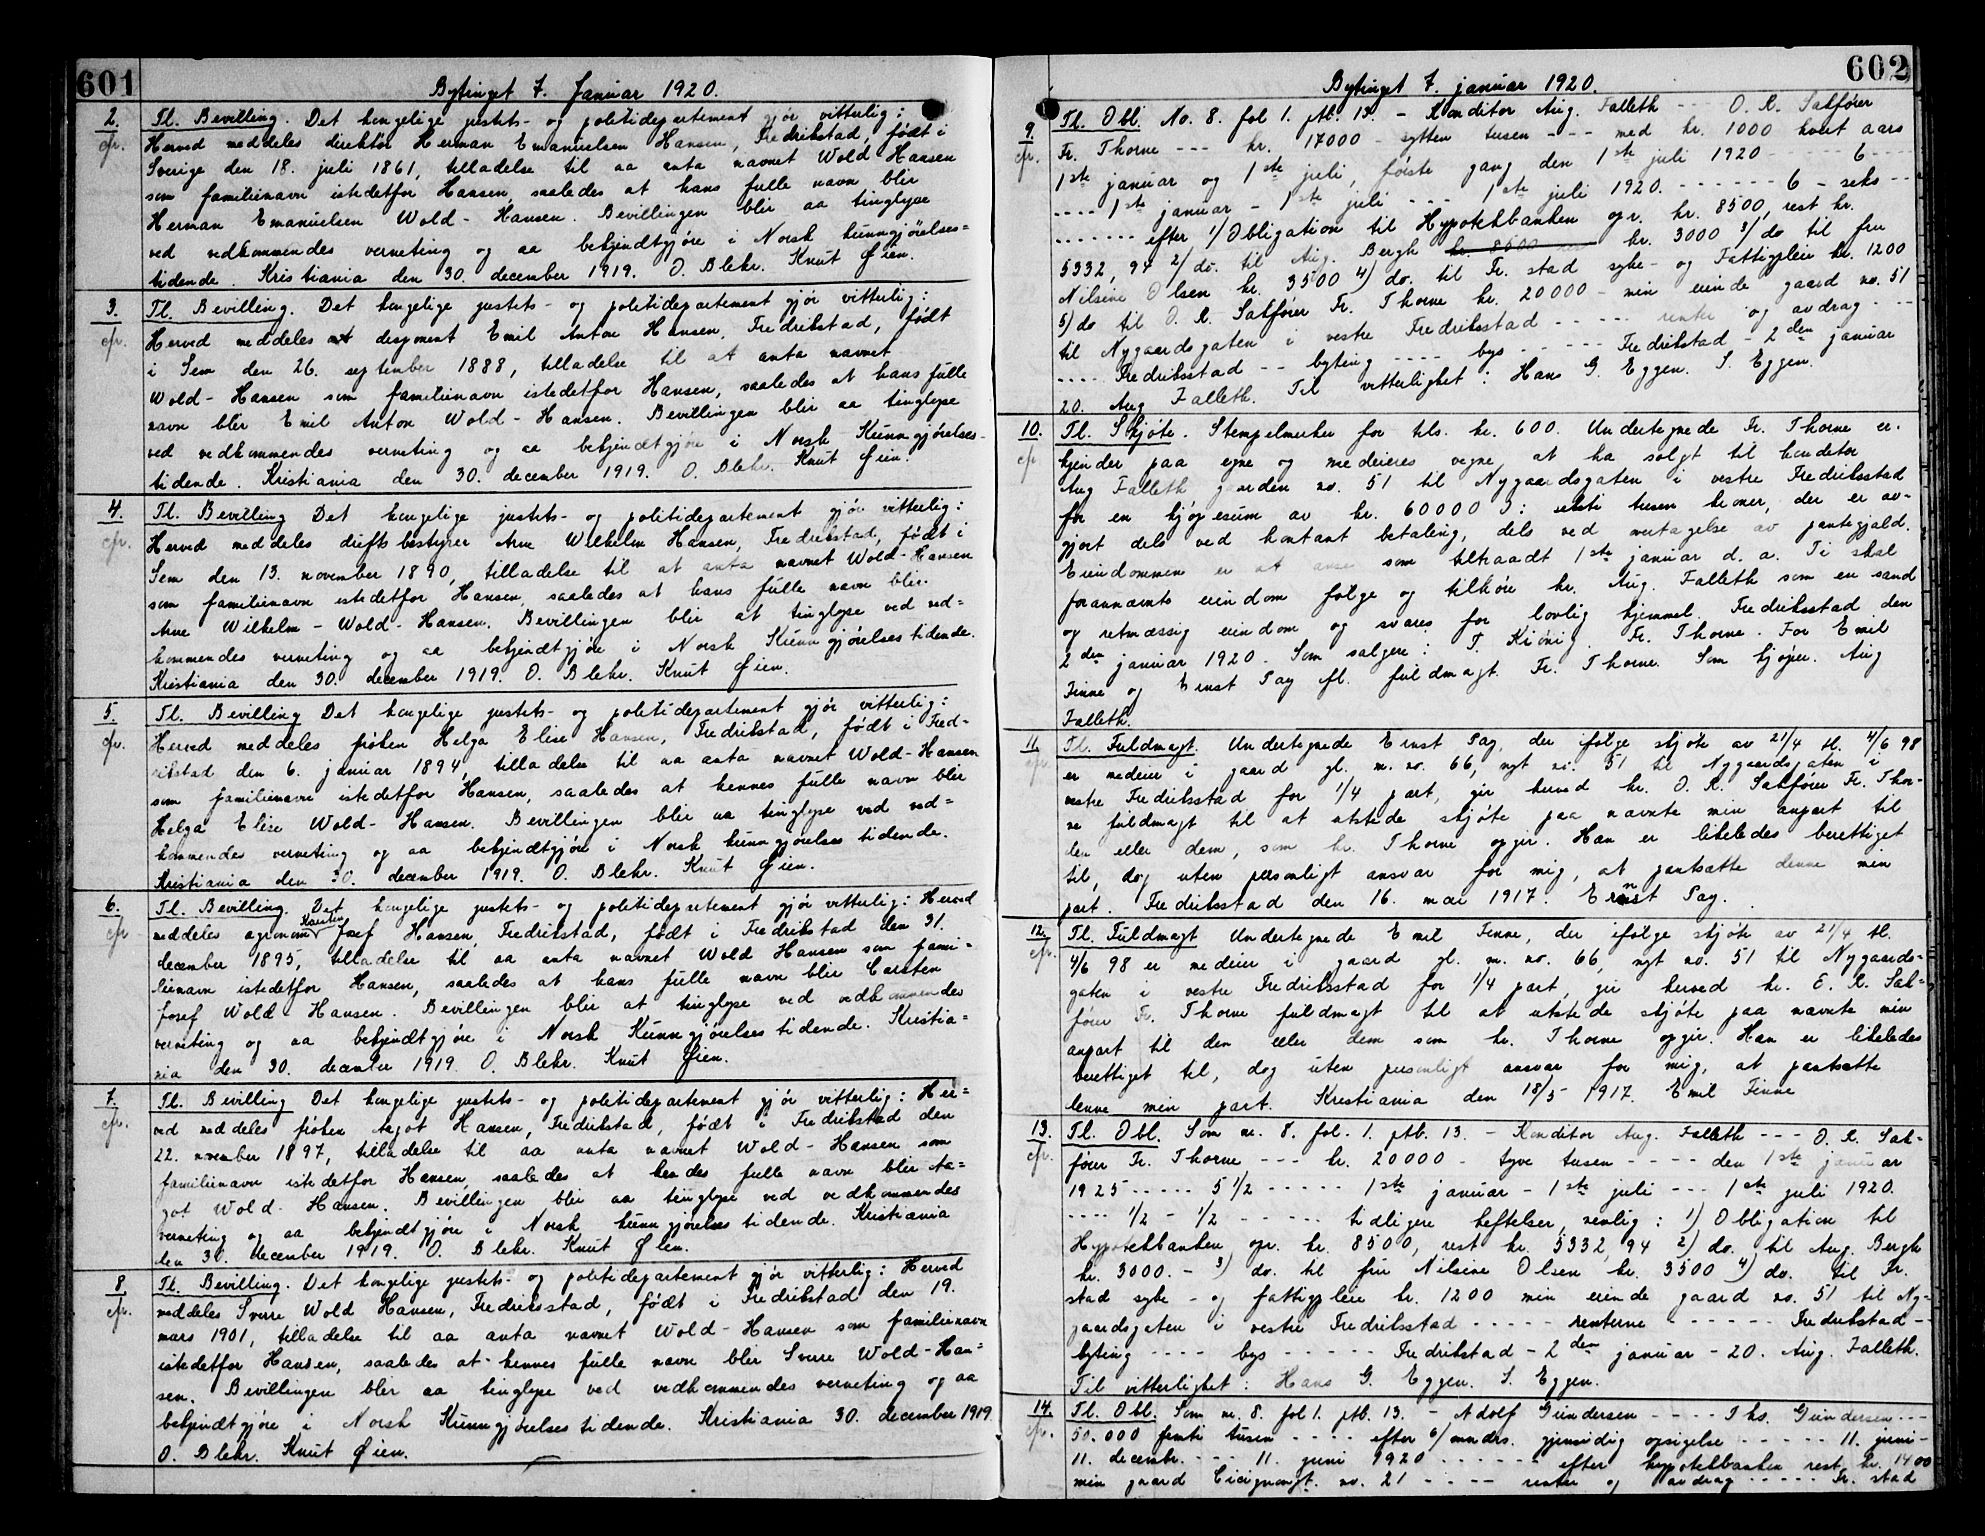 601
Bytinget 7. Januar 1920.
2. Tl. Bevilling. Det kongelige justits- og politidepartement gjør vitterlig:
cfr. Herved meddeles direktør Herman Emanuelsen Hansen, Fredrikstad, født i
Sverige den 18. juli 1861, tilladelse til aa anta navnet Wold Hansen
som familienavn istedetfor Hansen, saaledes at hans fulle navn blir
Herman Emanuelsen Wold-Hansen. Bevillingen blir aa tinglyse
ved vedkommendes verneting og aa bekjendtgjøre i Norsk kunngjørelses=
tidende. Kristiania den 30. december 1919. O. Blehr. Knut Øien.
3. Tl. Bevilling. Det kongelige justits- og politidepartement gjør vitterlig:
cfr. Herved meddeles disponent Emil Anton Hansen, Fredrikstad, født
i Sem den 26. september 1888, tilladelse til at anta navnet
Wold-Hansen som familienavn istedetfor Hansen, saaledes at hans fulle
navn blir Emil Anton Wold-Hansen. Bevillingen blir aa tinglyse
ved vedkommendes verneting og aa bekjendtgjøre i Norsk Kunngjørelses-
tidende. Kristiania den 30. december 1919. O. Blehr. Knut Øien.
4. Tl. Bevilling Det kongelige justits- og politidepartement gjør vitterlig:
cfr. Herved meddeles driftsbestyrer Arne Wilhelm Hansen, Fredrikstad, født i
Sem den 13. november 1890, tilladelse til at anta navnet Wold-Hansen
som familienavn istedetfor Hansen, saaledes at hans fulle navn blir
Arne Wilhelm-Wold-Hansen. Bevillingen blir at tinglyse ved ved=
kommendes verneting og aa bekjendtgjøre i Norsk Kunngjørelsestidende.
Kristiania den 30. december 1919. O. Blehr. Knut Øien.
5. Tl. Bevilling Det kongelige justits- og politidepartement gjør vitterlig:
cfr. Herved meddeles frøken Helga Elise Hansen, Fredrikstad, født i Fred-
rikstad den 6. januar 1894, tilladelse til aa anta navnet Wold-Hansen
som familienavn istedetfor Hansen, saaledes at hennes fulle navn blir
Helga Elise Wold-Hansen. Bevillingen blir aa tinglyse ved ved=
kommendes verneting og aa bekjendtgjøre i Norsk kunngjørelsestidende.
Kristiania den 30. december 1919. O. Blehr. Knut Øien.
6. Tl. Bevilling. Det kongelige justits- og politidepartement gjør vitterlig: Herved
cfr meddeles agronom Karsten Josef Hansen, Fredrikstad, født i Fredrikstad den 31.
december 1895, tilladelse til aa anta navnet Wold Hansen som fami-
lienavn istedetfor Hansen, saaledes at hans fulle navn blir Carsten
Josef Wold Hansen. Bevillingen blir at tinglyse ved vedkommendes
verneting og aa bekjendtgjøre i Norsk Kunngjørelsestidende. Kristia=
nia den 30. december 1919. O. Blehr. Knut Øien.
7. Tl. Bevilling Det kongelige justits- og politidepartement gjør vitterlig: Her=
cfr. ved meddeles frøken Aagot Hansen, Fredrikstad, født i Fredrikstad den
22. november 1897, tilladelse til aa anta navnet Wold-Hansen som
familienavn istedetfor Hansen, saaledes at hendes fulle navn blir Aa=
got Wold-Hansen. Bevillingen blir aa tinglyse ved vedkommendes
verneting og aa bekjendtgjøre i Norsk kunngjørelsestidende. Kristiania
den 30. december 1919. O. Blehr. Knut Øien.
8. Tl. Bevilling. Det kongelige justits- og politidepartement gjør vitterlig: Herved
cfr. meddeles Sverre Wold Hansen, Fredriksstad, født i Fredrikstad den 19.
mars 1901, tilladelse til aa anta navnet Wold-Hansen som familienavn
istedetfor Hansen, saaledes at hennes fulle navn blir Sverre Wold-Han=
sen. Bevillingen blir aa tinglyse ved vedkommendes verneting og aa
bekjendtgjøre i Norsk Kunngjørelsestidende. Kristiania 30. december 1919.
O. Blehr. Knut Øien.
602
Bytinget 7. januar 1920.
9. Tl. Obl. No. 8. fol 1. ptb. 13. - Konditor Aug. Falleth --- O. R. Sakfører
cfr. Fr. Thorne --- kr. 17000 - sytten tusen --- med kr. 1000 hvert aars
1ste januar og 1ste juli, første gang den 1ste juli 1920 ---- 6 ---
---- 1ste januar - 1ste juli --- 1ste juli 1920. ------ 6 - seks --
------- efter 1/ Obligation til Hypotekbanken opr. kr. 8500, rest kr.
5332,94 2/ do. til Aug. Bergh kr. 8500 kr. 3000 3/ do til fru
Nilsine Olsen kr. 3500 4) do. til Fr. stad syke- og Fattigpleie kr. 1200
5) do til O. R. Sakfører Fr. Thorne kr. 20000 - min eiende gaard no. 51
til Nygaardsgaten i vestre Fredriksstad ----- renter og avdrag ---
---- Fredriksstad -- byting ---- bys ----- Fredrikstad - 2den januar
20. Aug Falleth. Til vitterlighet: Hans G. Eggen. S. Eggen.
10. Tl. Skjøte. Stempelmerker for tils. kr. 600. Undertegnede Fr. Thorne er-
cfr kjender paa egne og medeieres vegne at ha solgt til konditor
Aug Falleth gaarden no. 51 til Nygaardsgaten i vestre Fredriksstad
for en kjøpesum av kr. 60000 : seksti tusen kroner, der er av-
gjort dels ved kontant betaling, dels ved overtagelse av pantegjæld.
Eiendommen er at anse som tiltraadt 1ste januar d. a. Ti skal
forannævnte eiendom følge og tilhøre hr. Aug. Falleth som en sand
og retmæssig eiendom og svares for lovlig hjemmel. Fredriksstad den
2den januar 1920. Som sælgere: T. Kiønig. Fr. Thorne. For Emil
Finne og Ernst Pay ifl. fuldmagt. Fr. Thorne. Som kjøper. Aug
Falleth.
11. Tl. Fuldmagt. Undertegnede Ernst Pay, der ifølge skjøte av 21/4 tl. 4/6 98
cfr. er medeier i gaard gl. m. no. 66, nyt no. 51 til Nygaardsgaten i
vestre Fredriksstad for 1/4 part, gir herved hr. O. R. Sakfører Fr. Thor-
ne fuldmagt til at utstede skjøte paa nævnte min anpart til
den eller dem, som hr. Thorne opgir. Han er likeledes berettiget
til, dog uten personligt ansvar for mig, at pantsætte denne min
part. Fredriksstad den 16. mai 1917. Ernst Pay.
12. Tl. Fuldmagt Undertegnede Emil Finne, der ifølge skjøte av 21/4 tl.
cfr. 4/6 98 er medeier i gaard gl. m. no. 66, nyt no. 51 til Nygaards-
gaten i vestre Fredriksstad for 1/4 part, gir herved hr. E. R. Sak-
fører Fr. Thorne fuldmagt til at utstede skjøte paa nævnte min
anpart til den eller dem som hr. Thorne opgir. Han er likeledes
berettiget til, dog uten personligt ansvar for mig, at pantsætte
denne min part. Kristiania den 18/5 1917. Emil Finne
13. Tl. Obl. Som nr. 8. fol. 1. ptb. 13. - Konditor Aug. Falleth --- O. R. Sak-
cfr. fører Fr. Thorne --- kr. 20000 - tyve tusen ---- den 1ste januar
1925 ----- 5 1/2 ----- 1ste januar - 1ste juli --- 1ste juli 1920.
---- 1/2 - 1/2 ------ tidligere heftelser, nemlig: 1) Obligation til
Hypotekbanken opr. kr. 8500, rest kr. 5332,94 2) do. til Aug. Bergh
kr. 3000. - 3) do. til fru Nilsine Olsen kr. 3500 4) do. til Fr.
stad syke- og fattigpleie kr. 1200 min eiende gaard no. 51 til Ny-
gaardsgaten i vestre Fredriksstad ----- renterne ------ Fredrikstad --
byting ---- bys ------ Fredrikstad - 2den januar - 20. Aug. Falleth.
Til vitterlighet: Hans G. Eggen. S. Eggen.
14. Tl. Obl. Som nr. 8. fol 1. ptb. 13. - Adolf Gundersen ---- Ths. Gundersen ---
cfr. 50.000 femti tusen ---- efter 6/ mndrs. gjensidig opsigelse ----- 11. juni -
11. decembr. ---- 11. juni 1920 ------ efter hypotekbanken rest kr. 1400
min gaard Cicignongt. no. 21 ---- renter og avdrag ----- Fr. stad